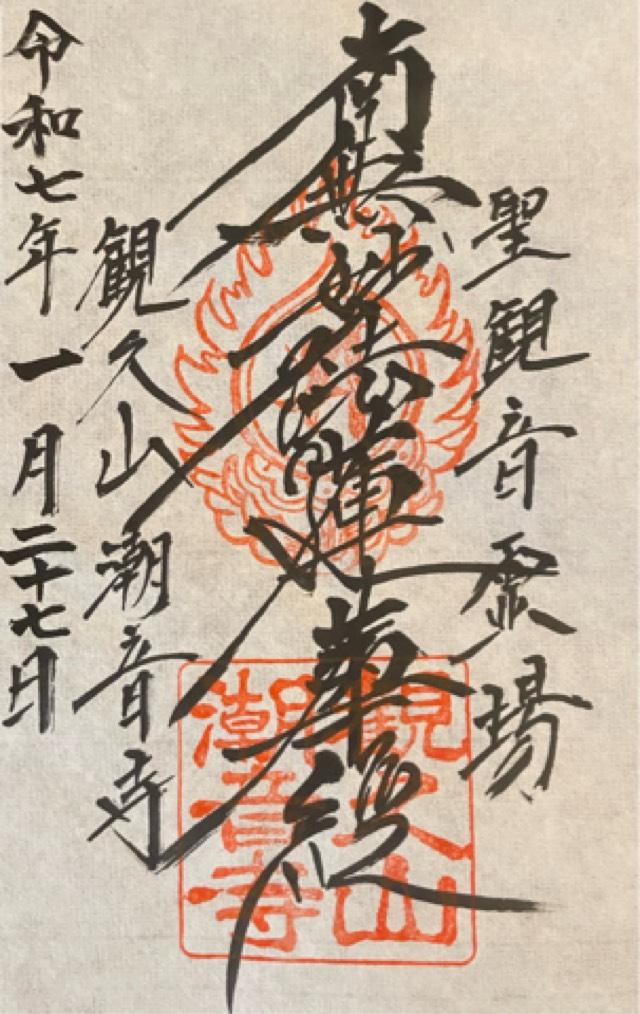 聖観音霊場
南無妙法蓮華経
観久山潮音寺
令和七年一月二十七日
観久山
潮音寺